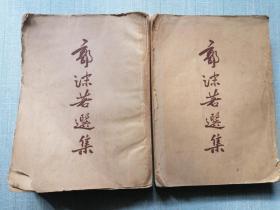 郭沫若選集
郭沫若選集